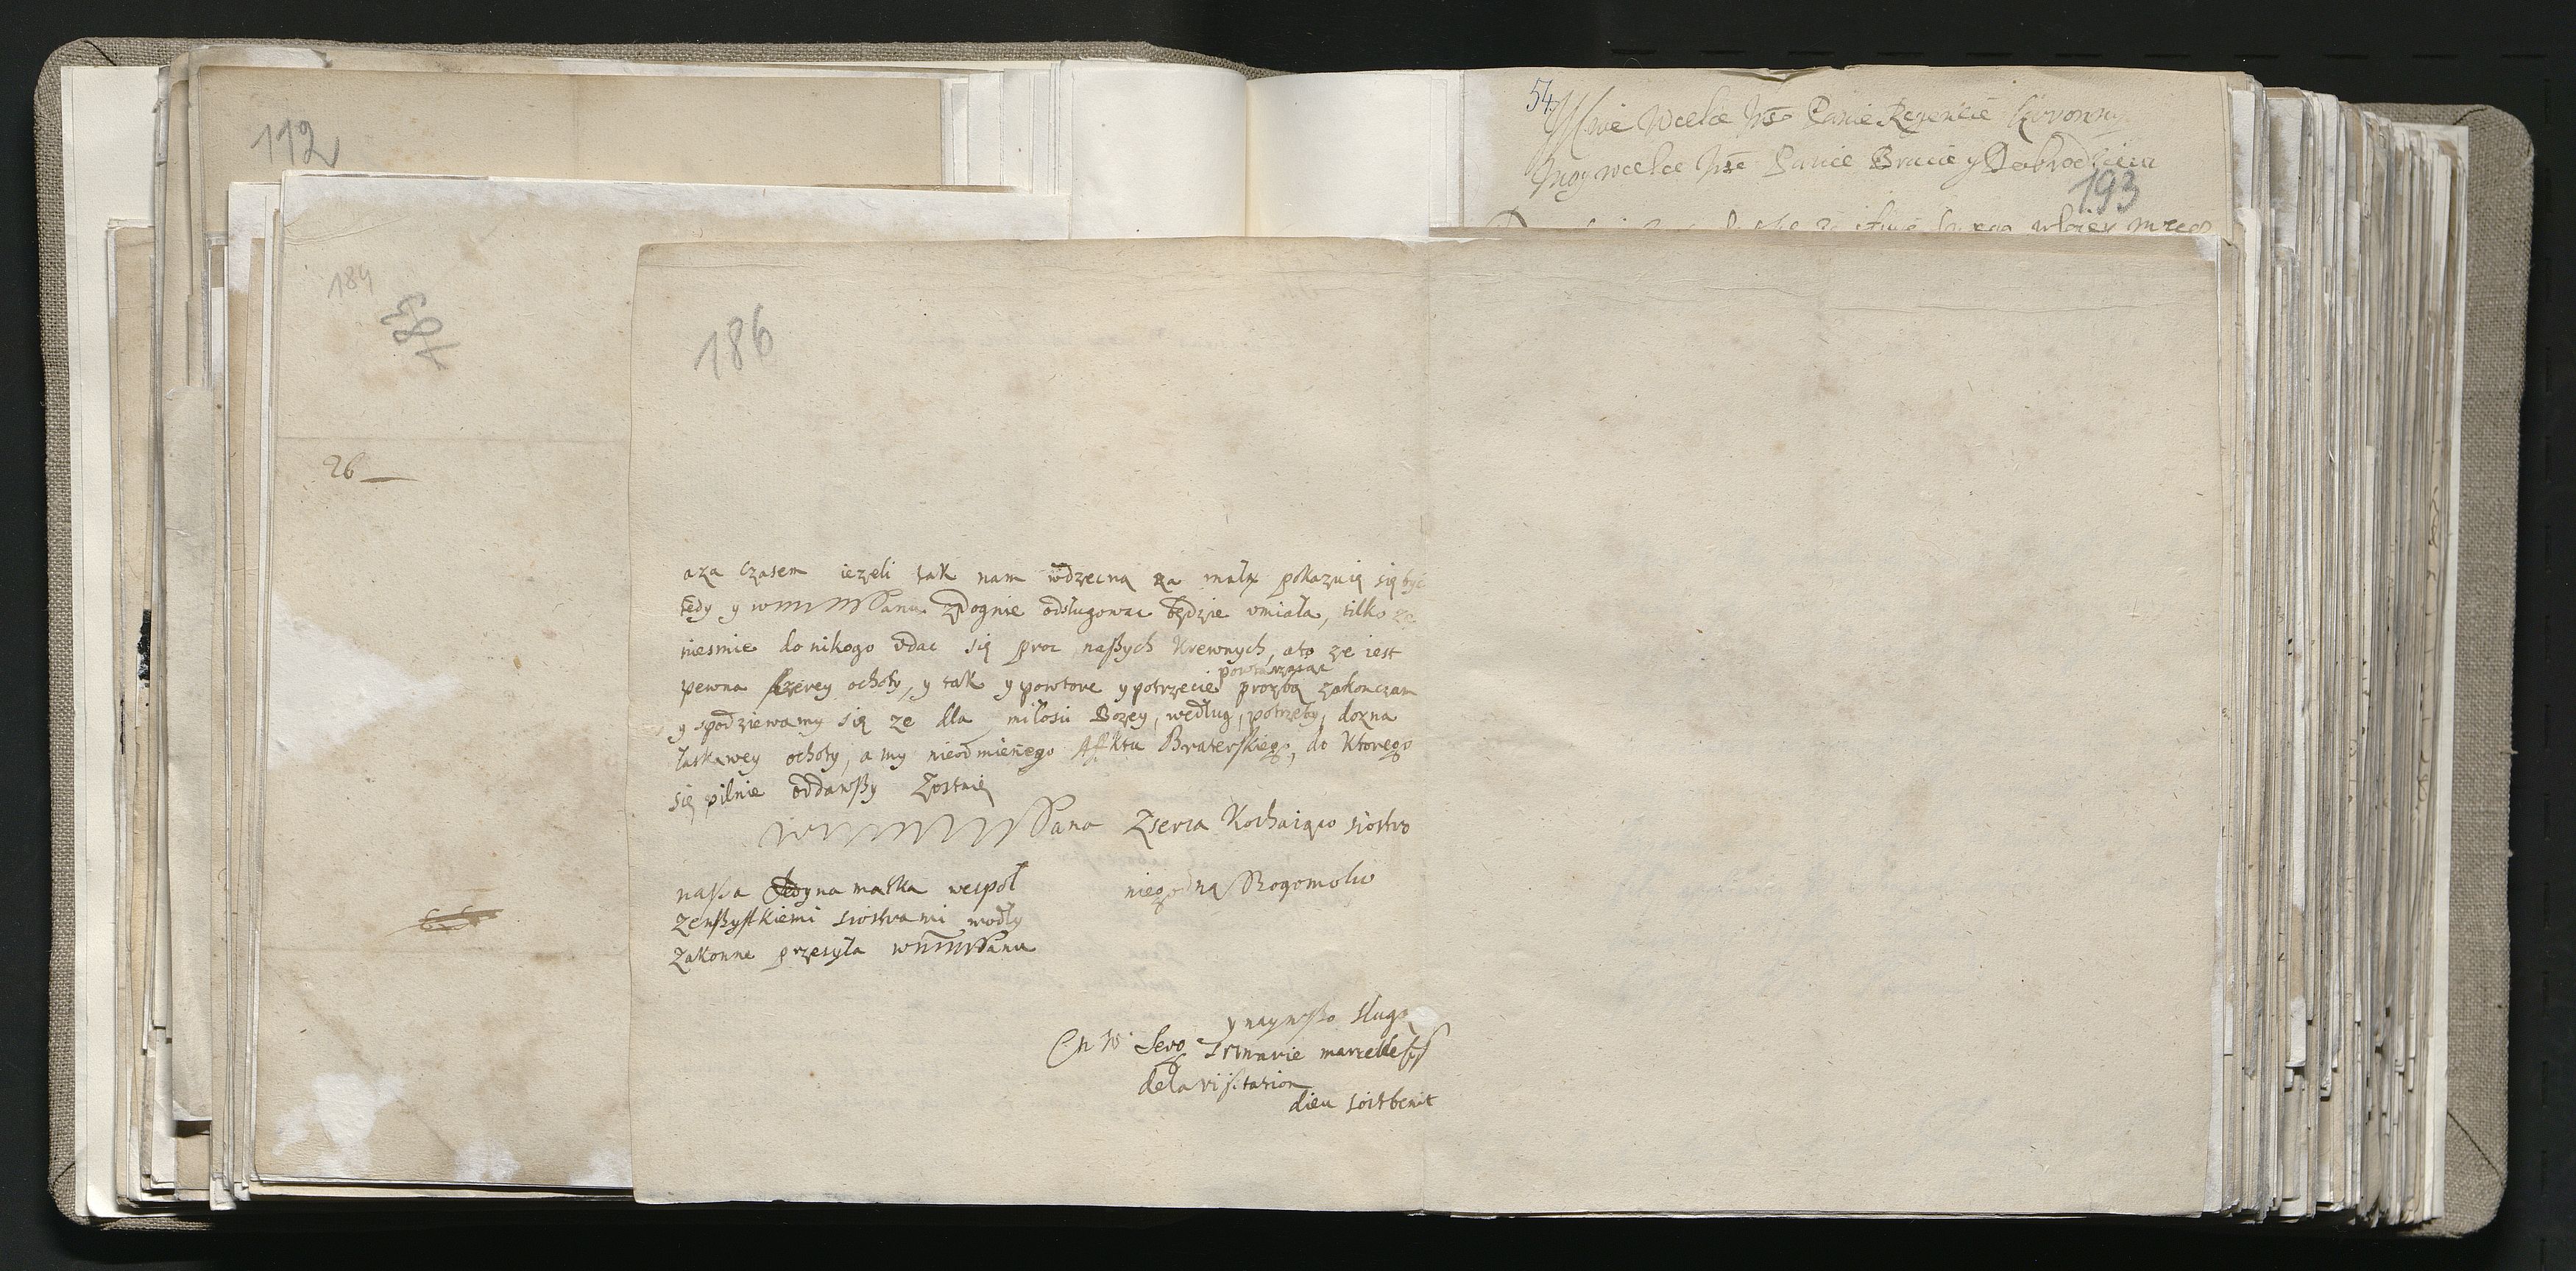 112
184
183
26 —
54
Mnie Wielce Panie Regencie Koronny
Moy wielce Panie Bracie y Dobrodzieiu
193
186
aza czasem iezeli tak nam wdzecną za małą pokazuią się być
tedy y Panu odsługowac będzie umiała, tilko ze
niesmie do nikogo udac się proc naszych Krewnych, ato ze iest
pewna szerey ochoty, y tak y powtore y potrzecie powtarzaiac prozbą zakonczam
y spodziewamy się ze dla miłosii Bozey, według, potrzeby, dozna
łaskawey ochoty, a my nieodmienego Affktu Braterskiego, do Ktorego
się pilnie oddawszy Zostaię
Pana Zserca Kochaiąca siostra
niegodna Bogomolca
nasza Jedyna matka wespoł
zewszystkiemi siostrami modły
zakonne przesyła Panu
y naynisza sluga
marie
dela visitation
dieu soit benit